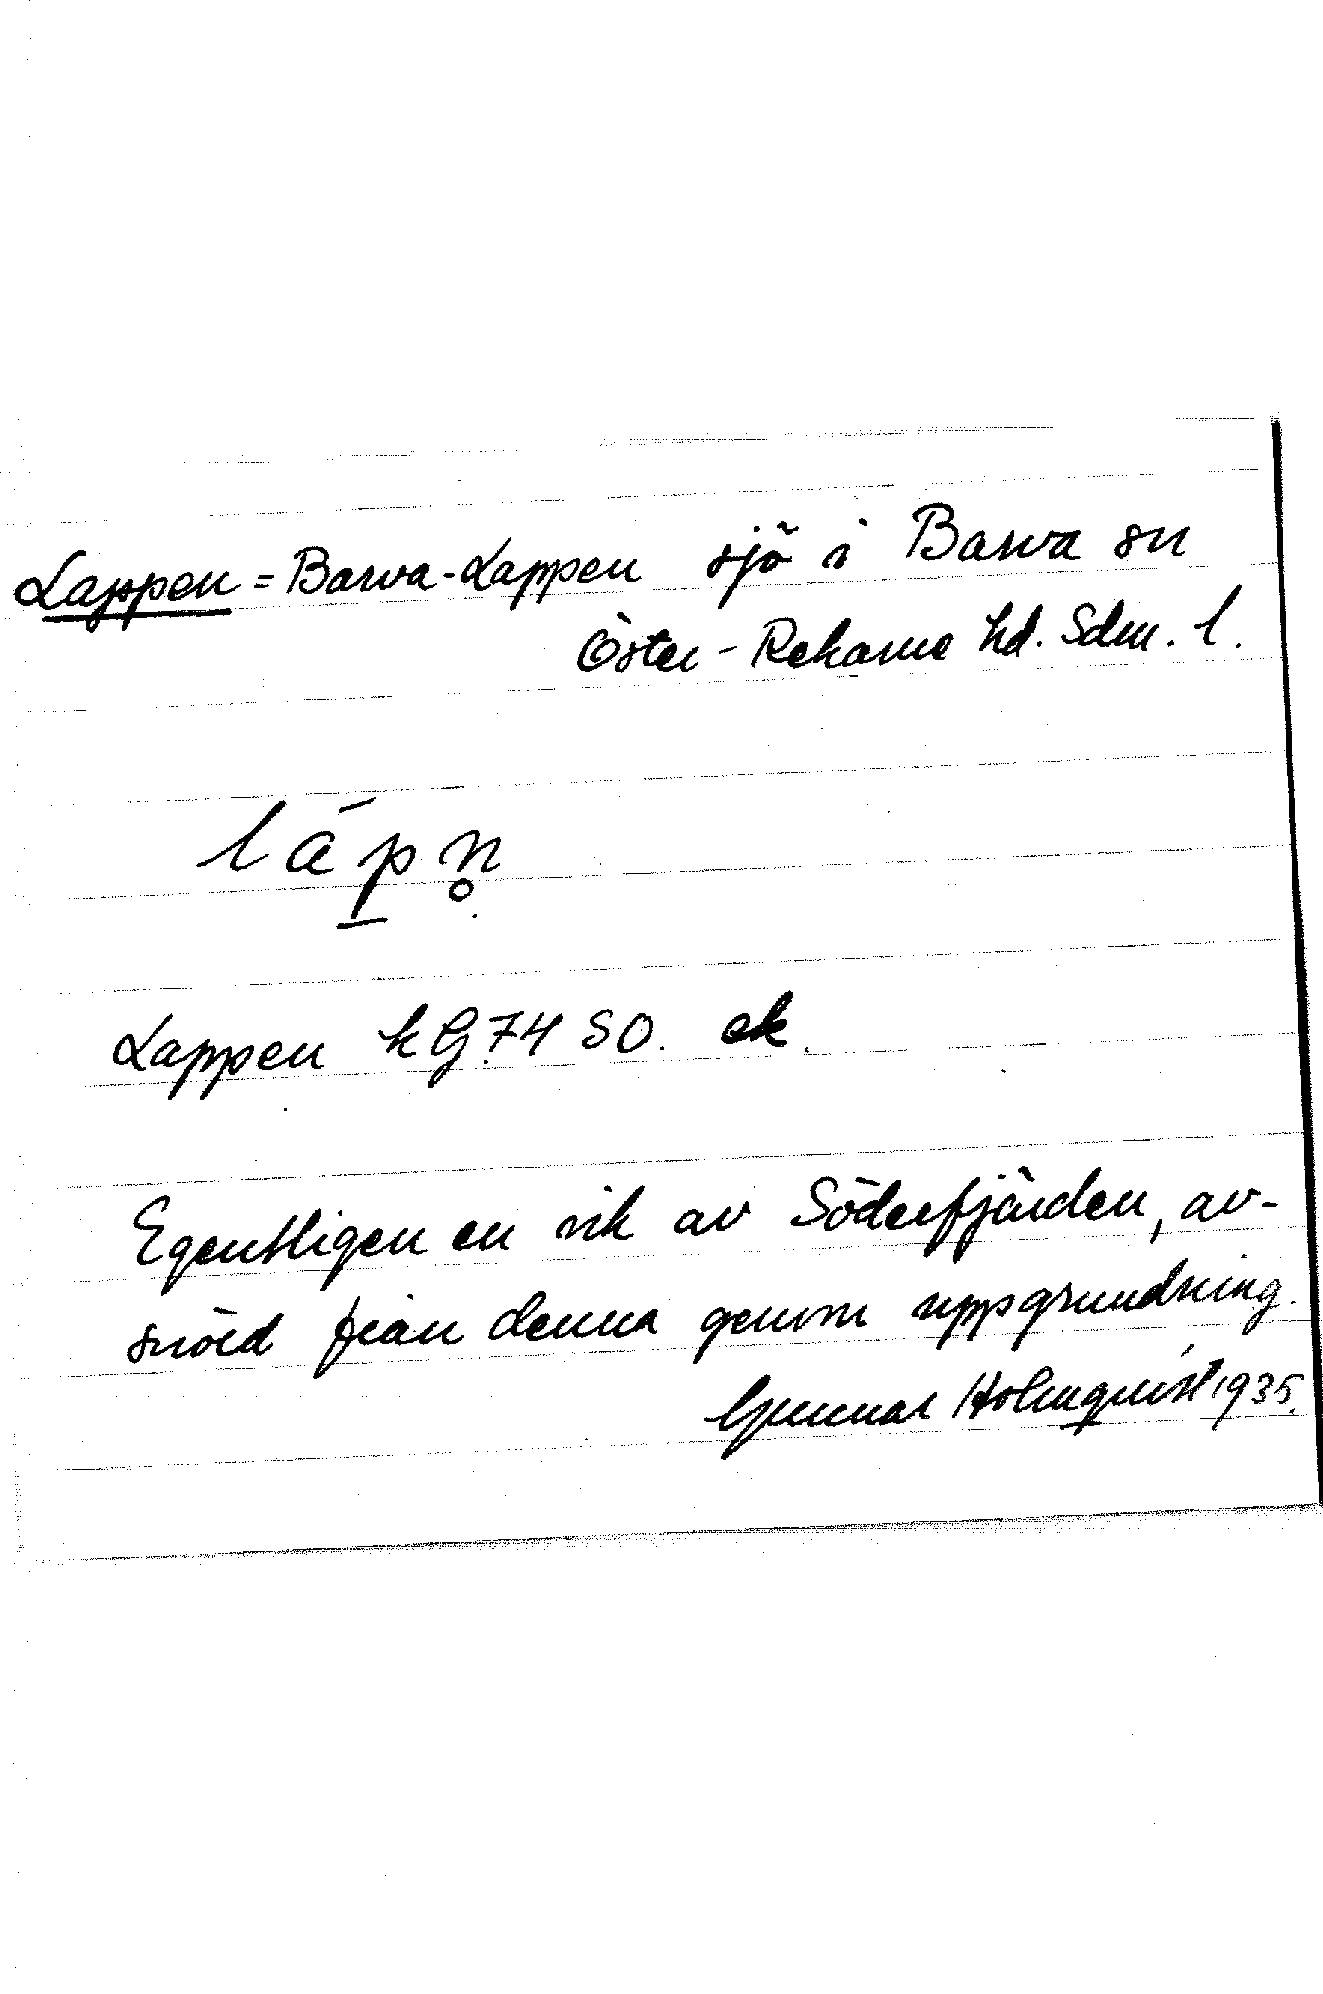 Lappen = Barva-Lappen sjö i Barva sn
Öster-Rekarne hd. Sdm. l.
lápn̥
Lappen kG.74 SO. ek.
Egentligen en vik av Söderfjärden, av-
snörd från denna genom uppgrundning.
Gunnar Holmquist 1935.